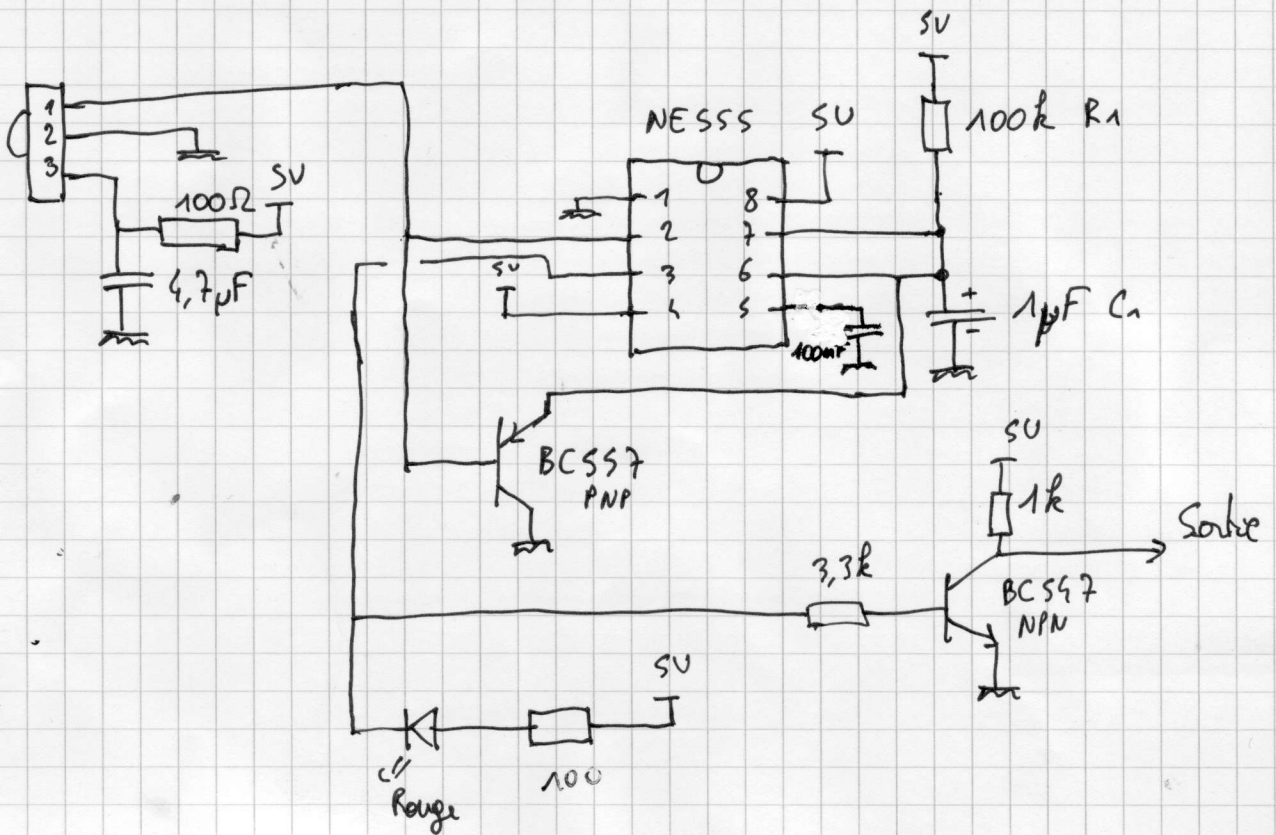 1
2
3
100Ω
5V
4,7µF
NE555
5V
1
2
3
4
5V
8
7
6
5
100nF
5V
100k R1
+
1µF C1
-
BC557
PNP
5V
1k
Sortie
3,3k
BC547
NPN
5V
100
Rouge